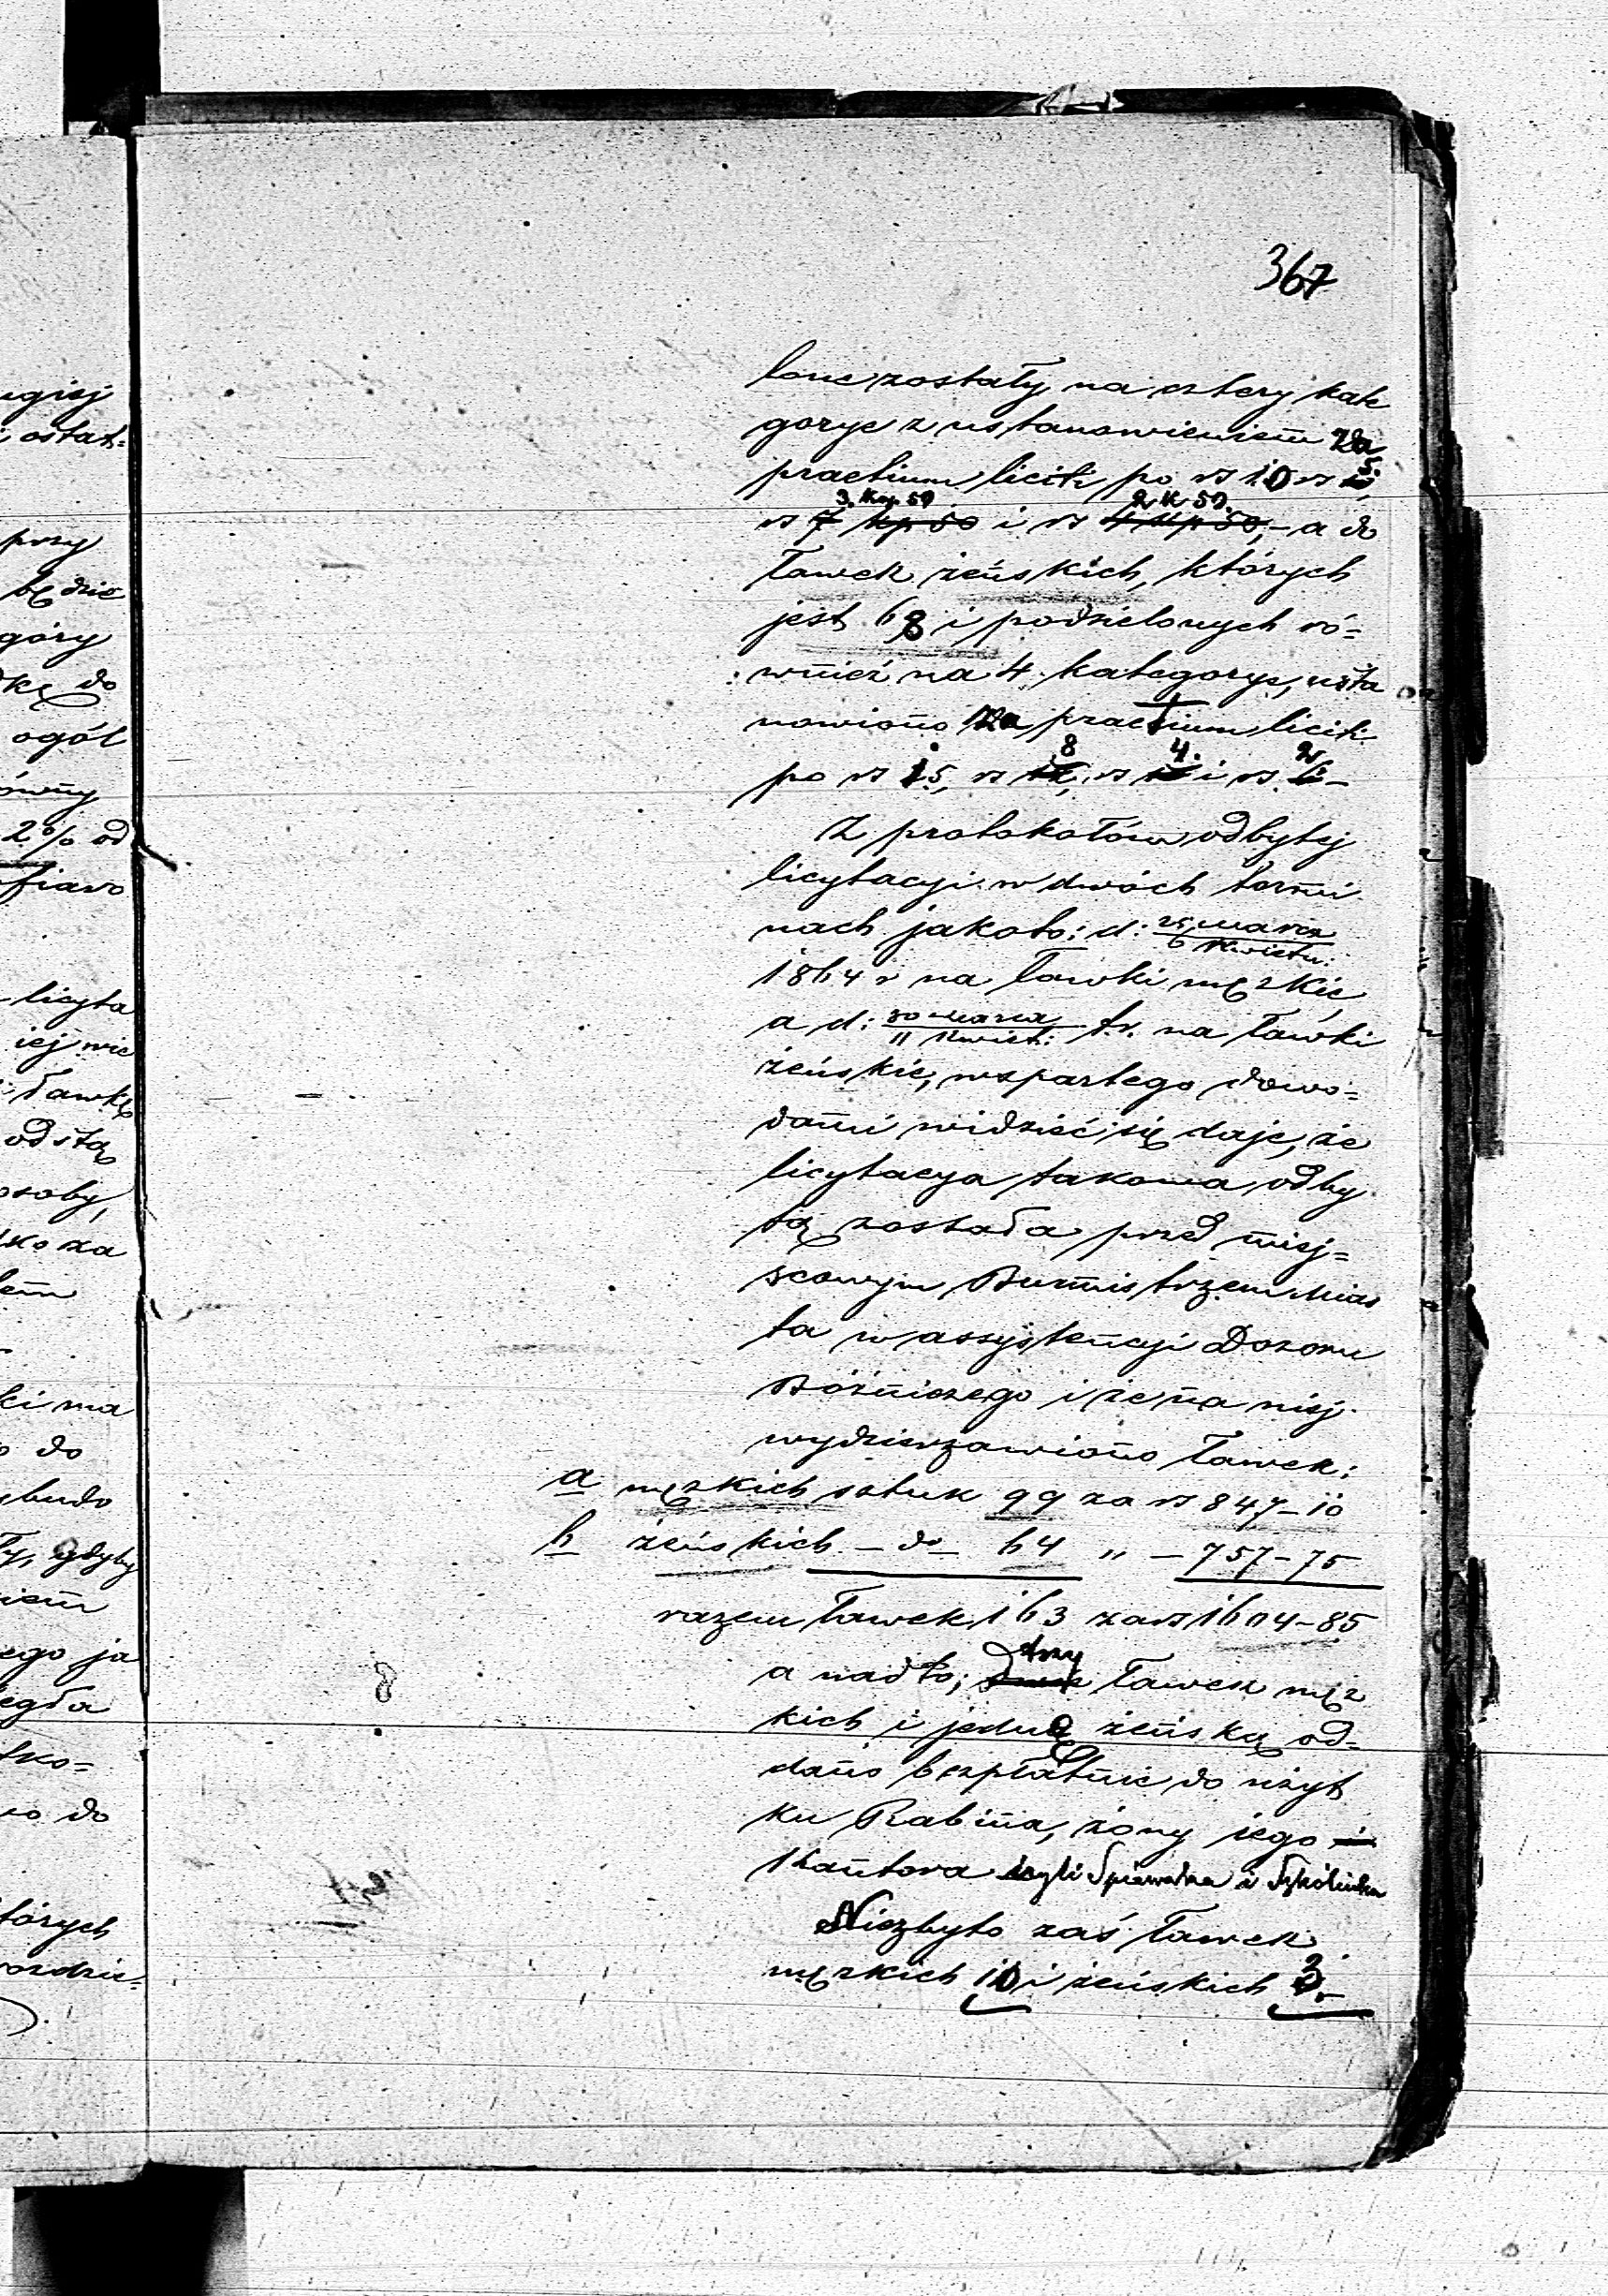 367
lone zostały na cztery kate
gorye z ustanowieniem za
praetium liciti po rs 10 rs 5.
3. Kop. 50 2 K 50.
rs 7 kp 50 i rs 4 kp 50,- a do
Ławek żeńskich, których
jest 68 i podzielonych ró=
wnież na 4 kategorye, usta
nowiono za praetium liciti
8 4. 2
po rs 15, rs rs i rs
Z protokołów odbytej
licytacyi w dwóch termi
nach jakoto: d: 25 marca
6 Kwietn:
1864 r na Ławki męzkie,
a d: 30 Marca
11 Kwiet: t.r. na Ławki
żeńskie, wspartego dowo=
dami widzieć się daje, że
licytacya takowa odby
tą została przed miej=
scowym Burmistrzem Mias
ta w assystencyi Dozoru
Bóżniczego i że na niej
wydzierzawiono Ławek:
a męzkich sztuk 99 za rs 847-10
b żeńskich - do - 64 " - 757-75
razem Ławek 163 za rs 1604-85
trzy
a nadto; dwie Ławek męz
kich i jedną żeńską od=
dano bezpłatnie do użyt
ku Rabina, żony jego i
Kantora czyli Spiewaka i Szkólnika
Niezbyto zaś Ławek
męzkich 10 i żeńskich 3.-
ugiej
i ostat=
przy
będzie
góry
dkę do
ogół
ówny
2% od
fiaro
licyta
iej nie
Ławkę
odstą
osoby,
lko za
lem
ki ma
do
budo
ły, gdyby
niem
ego ja
egła
tko=
no do
tórych
ozdzie=